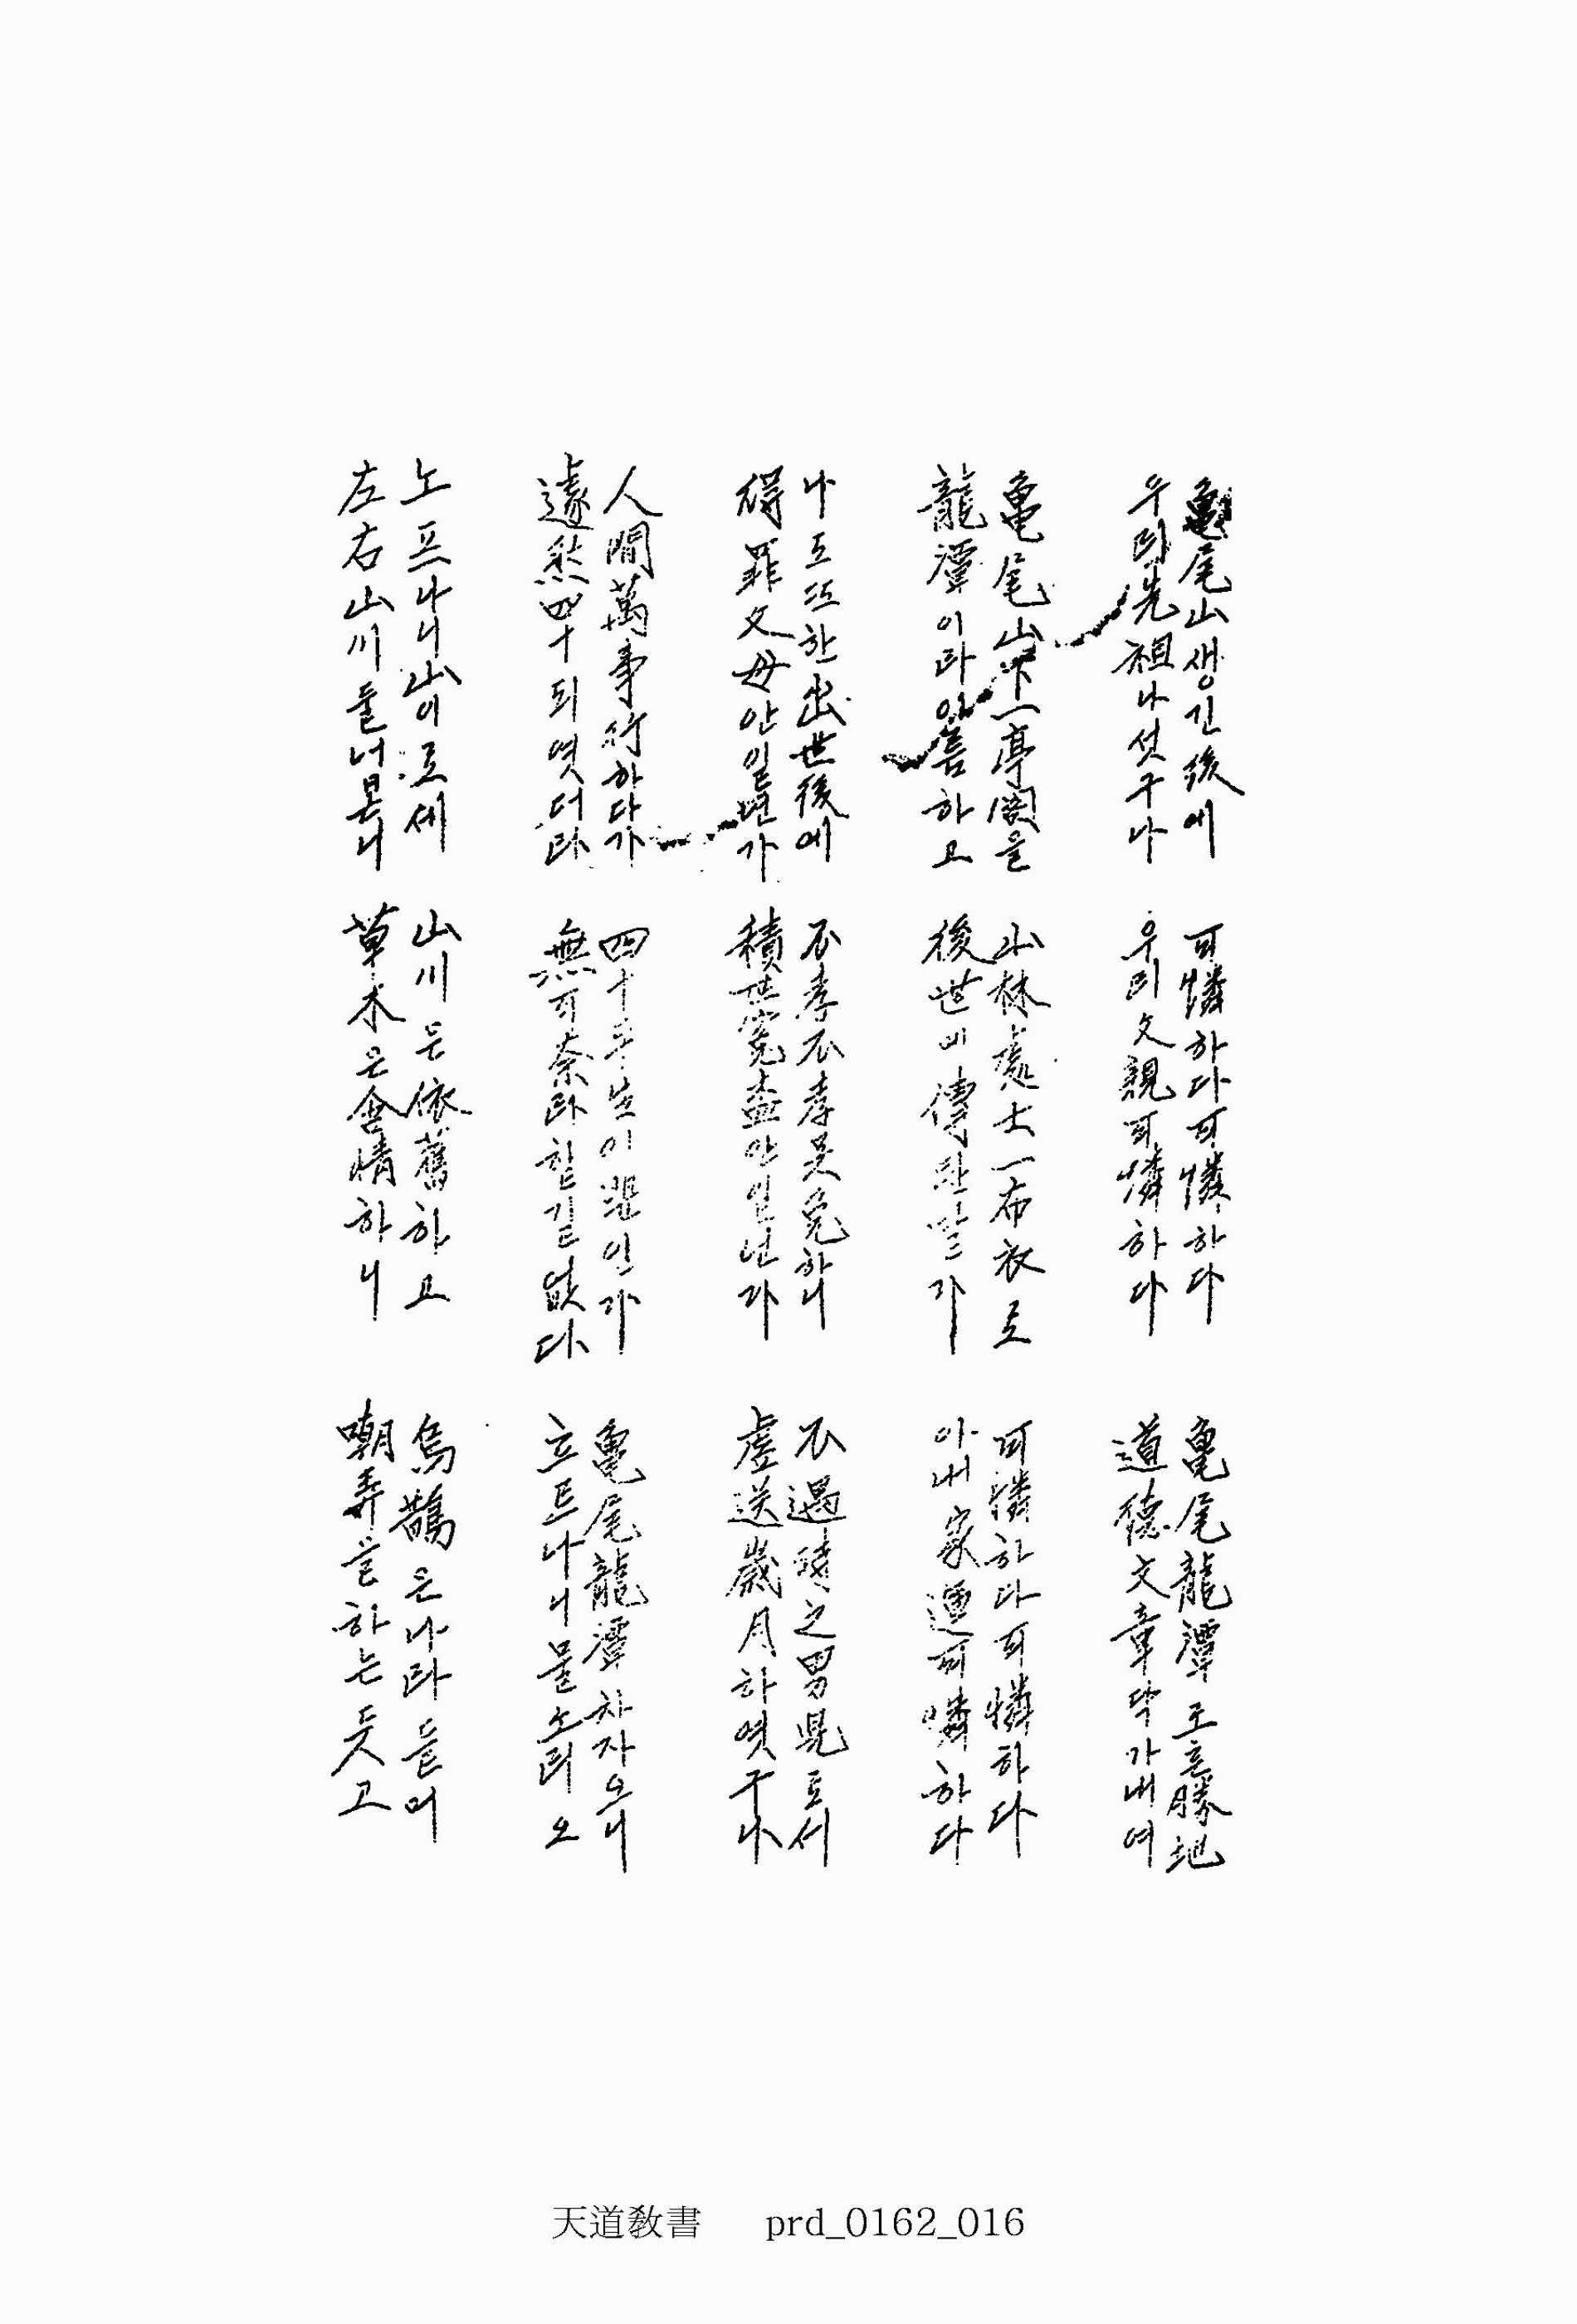 龜尾山生긴後에
우리先祖나섯구나
可憐하다可憐하다
우리父親可憐하다
龜尾龍潭조흔勝地
道德文章닥가내여
龜尾山下一亭閣을
龍潭이라일흠하고
山林處士一布衣로
後世에傳탄말가
可憐하다可憐하다
이내家運可憐하다
나도또한出世後에
得罪父母안일넌가
不孝不孝못免하니
積世寃盃안일넌가
不遇時之男兒로서
虛送歲月하엿구나
人間萬事行하다가
遽然四十되엿더라
四十平生이뿐인가
無可奈라할길없다
龜尾龍潭차자오니
흐르나니물소리오
노프나니山이로세
左右山川둘너보니
山川은依舊하고
草木은含情하니
烏鵲은나라들며
嘲弄을하는듯고
天道敎書 prd_0162_016